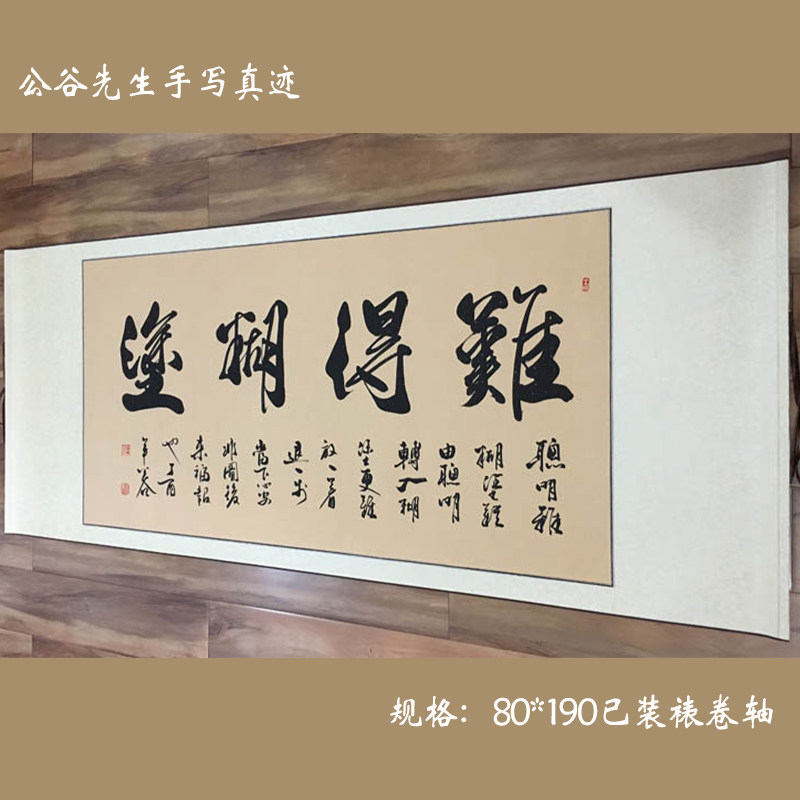 公谷先生手写真迹
難得糊塗
聰明難
糊塗難
由聰明
轉入糊
塗更難
放一着
退一步
當下心安
非圖後
来福報
也丁酉
年公谷
规格：80*190已装裱卷轴